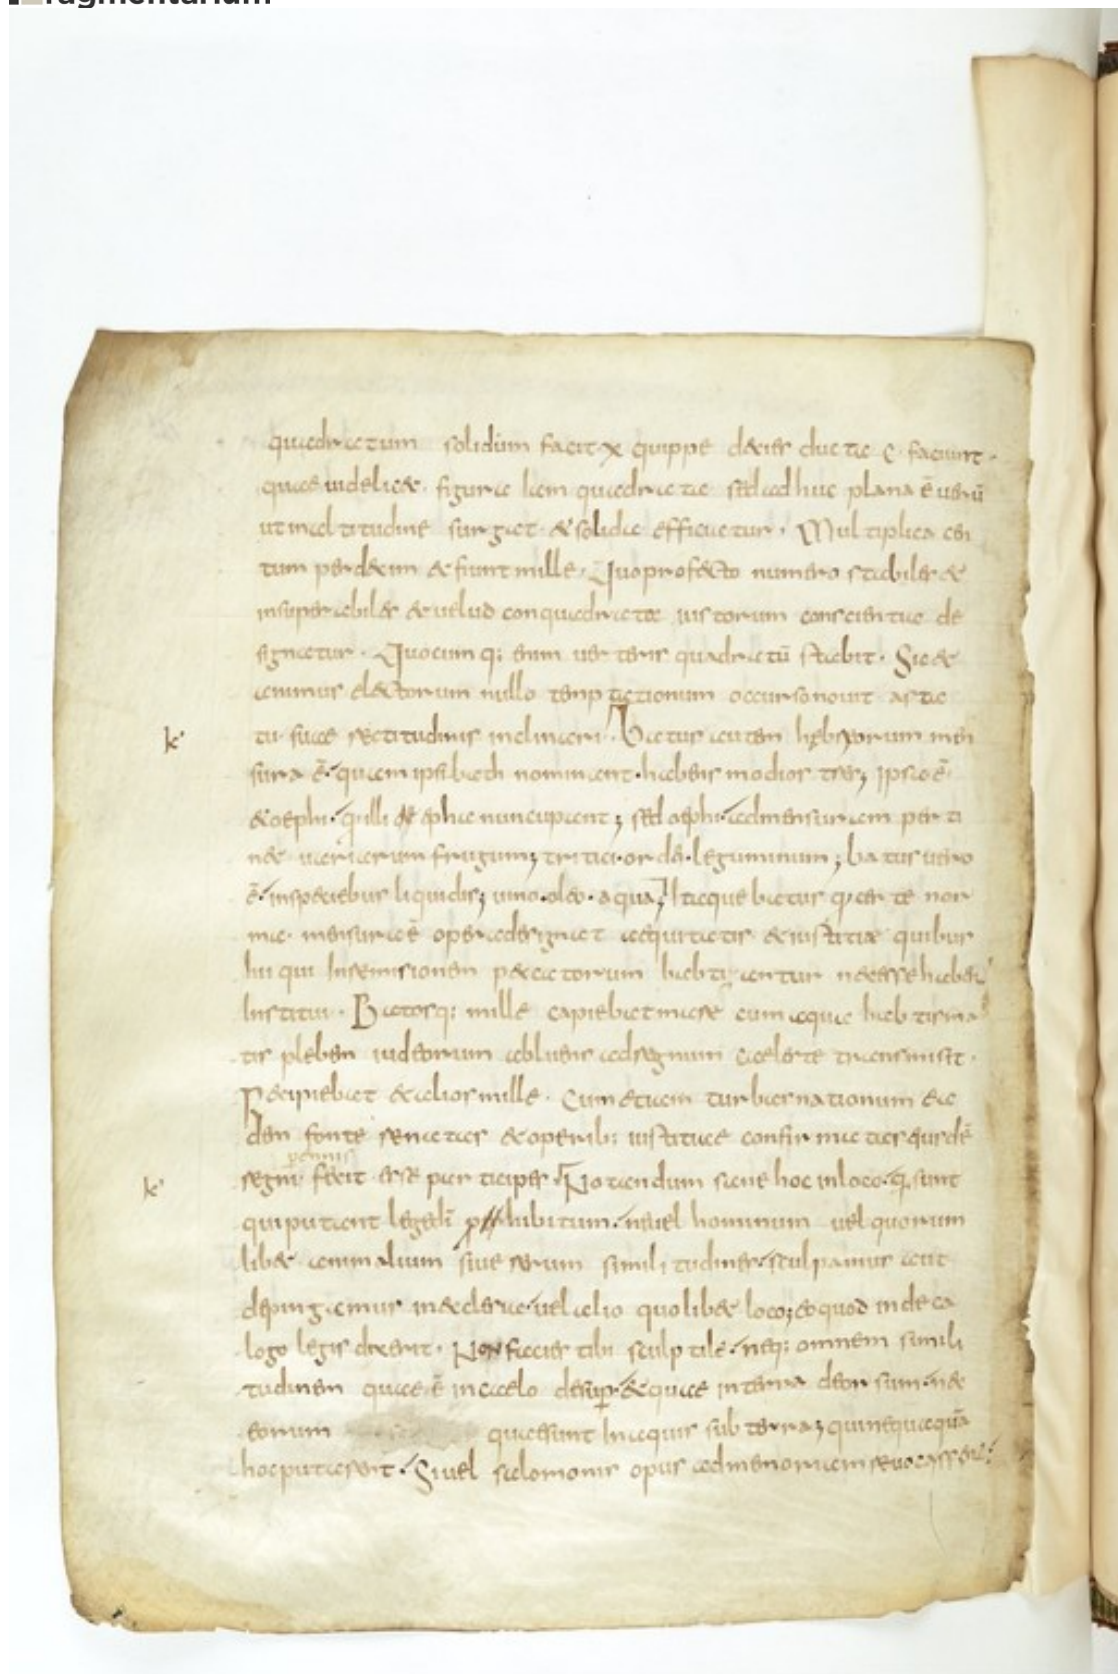 ragmentarium
quadratum solidum facit · X quippe decies ducta C · faciunt ·
quae uidelicet · figura liem quadrata sed adhuc plana ē uerū
ut in altitudine surgat · & solida efficiatur · Multiplica cen
tum per decim & fiunt mille · Quo profecto numero stabiles &
insuperabiles & uelud conquadratae iustorum conscientiae de
signatur · Quocumq; enim uerteris quadratū stabit · Sic &
animus electorum nullo temptationum occurso nouit a sta
tu suae rectitudinis inclinari · Batus autem hębreorum men
sura ē · quam ipsi bath nominant · habens modios tres; Ipsa ē ·
& oephi · q illi epha nuncupant; sed oephi · ad mensuram perti
net · aridarum frugum; tritici · ordei · leguminum; batus uero
ē · in speciebus liquidis; uino · oleo · aqua; Itaque batus q certe nor
k
mae mensura ē opera designat aequitatis & iustitiae quibus
hii qui In remisionem peccatorum babtizantur necesse haber
Institui · Batosq; mille capiebat mare cum aqua babtisma
tis plebem iudeorum abluens ad regnum caeleste transmisit ·
Recipiebat & alios mille · Cum etiam turbas nationum ea
dem fonte renatas & operib; iustitiae confirmatas eiusdē
regni perennis fecit esse participes · Notandum sane hoc in loco · q sunt
k
qui putant lege di phibitum · ne uel hominum uel quorum
libet animalium siue rerum similitudines · sculpamus aut
depingamus in ecclesia · uel alio quolibet loco; eo quod in deca
logo legis dixerit · Non facies tibi sculptile · neq; omnem simili
tudinem quae ē in caelo desup · & quae in terra deorsum · nec
eorum quae sunt In aquis sub terra; qui nequaquā
hoc putarent · Si uel salomonis opus ad memoriam reuocassent ·